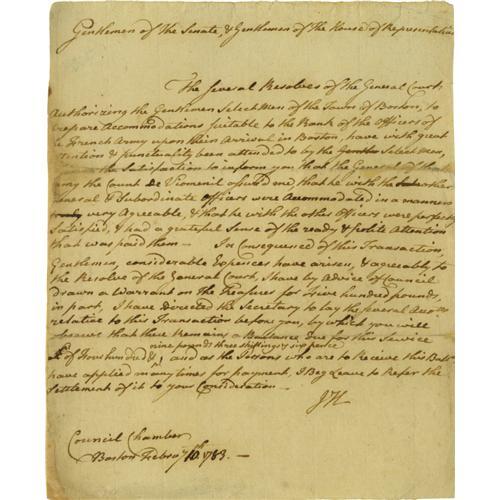 Gentlemen of the Senate, & Gentlemen of the House of Representatives
The several Resolves of the General Court
Authorizing the Gentlemen Select Men of the Town of Boston, to
prepare Accommodations suitable to the Rank of the Officers of
French Army upon their Arrival in Boston, have with great
ttention & punctuality been attended to by the Select Men,
the Satisfaction to inform you that the General of that
my the Count De Viomenil assured me, that he with the other
eneral & Subordinate officers were Accommodated in a manner
very Agreeable, & that he with the other officers were perfectly
Satisfied, & had a grateful Sense of the ready & polite Attention
that was paid them — In Consequence of this Transaction,
Gentlemen, considerable Expences have arisen, & agreeably to
the Resolve of the General Court, I have by Advice of Council
drawn a Warrant on the Treasurer for five hundred pounds,
in part, I have Directed the Secretary to lay the several Accots
relative to this Transaction before you, by which you will
observe that there Remains a Ballance Due for this Service
nine pounds three shillings & six pence
of four hundred & , and as the Persons who are to Receive this Ball
have applied many times for payment, I Beg Leave to Refer the
Settlement of it to your Consideration —
JH
Council Chamber
Boston Febru'y 10th. 1783. —